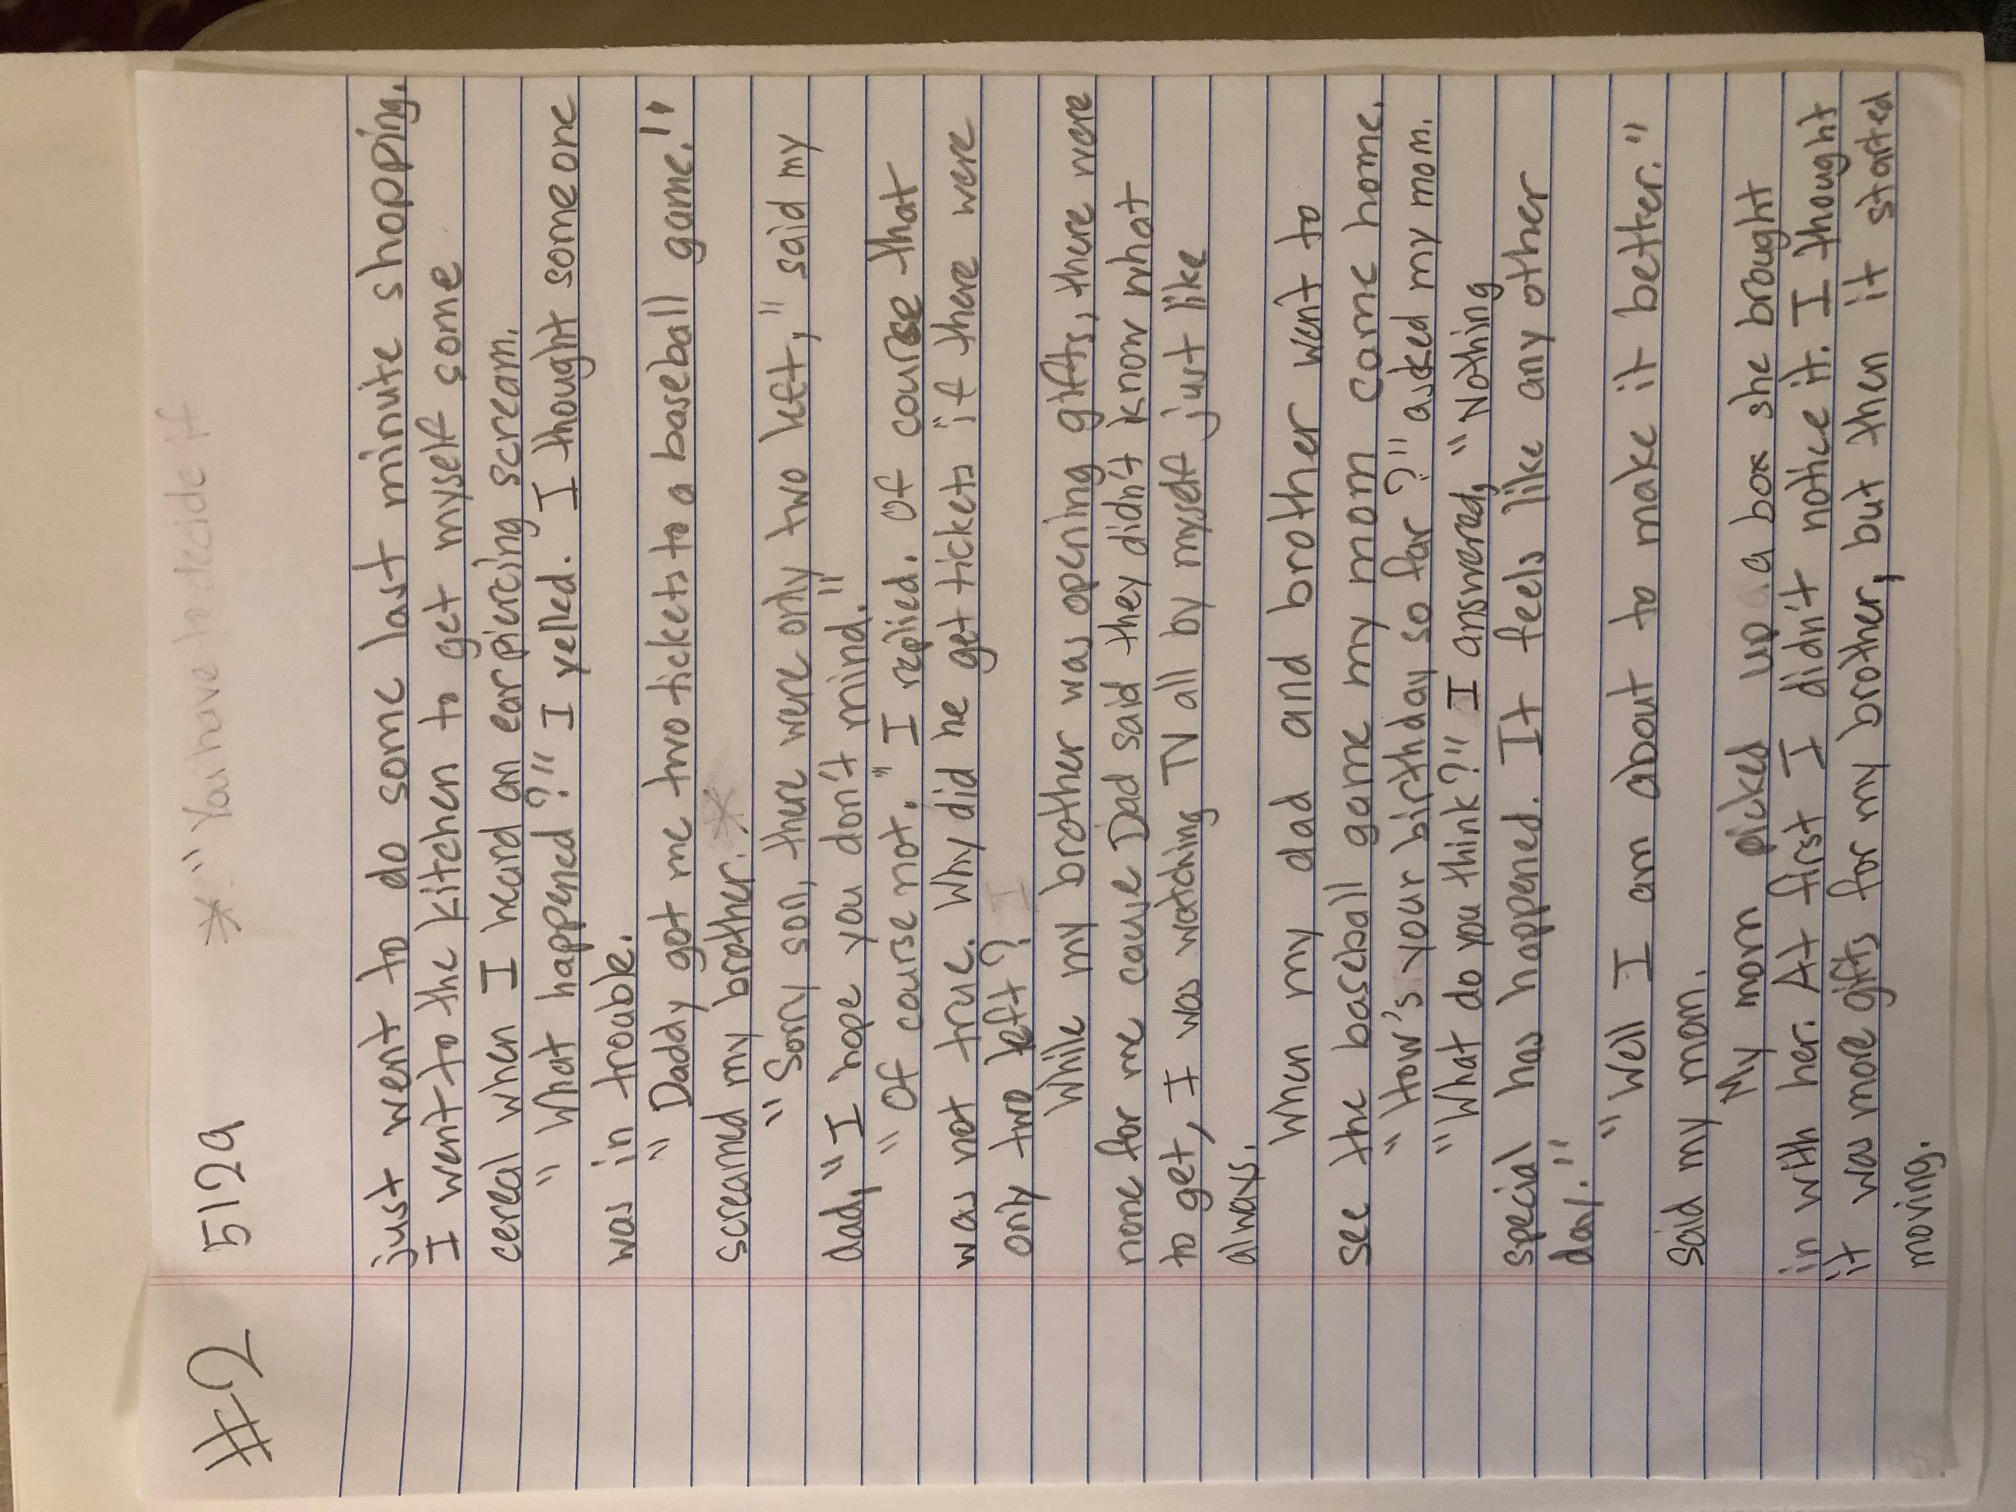 #2 5129 * "You have to decide if
just went to do some last minute shopping.
I went to the kitchen to get myself some
cereal when I heard an ear piercing scream.
"What happened?" I yelled. I thought someone
was in trouble.
"Daddy got me two tickets to a baseball game!"
screamed my brother. *
"Sorry son, there were only two left," said my
dad, "I hope you don't mind."
"Of course not." I replied. Of course that
was not true. Why did he get tickets if there were
only two left? I
While my brother was opening gifts, there were
none for me cause Dad said they didn't know what
to get, I was watching TV all by myself just like
always.
When my dad and brother went to
see the baseball game my mom came home.
"How's your birthday so far?" asked my mom.
"What do you think?" I answered, "Nothing
special has happened. It feels like any other
day."
"Well I am about to make it better."
said my mom.
My mom picked up a box she brought
in with her. At first I didn't notice it. I thought
it was more gifts for my brother, but then it started
moving.